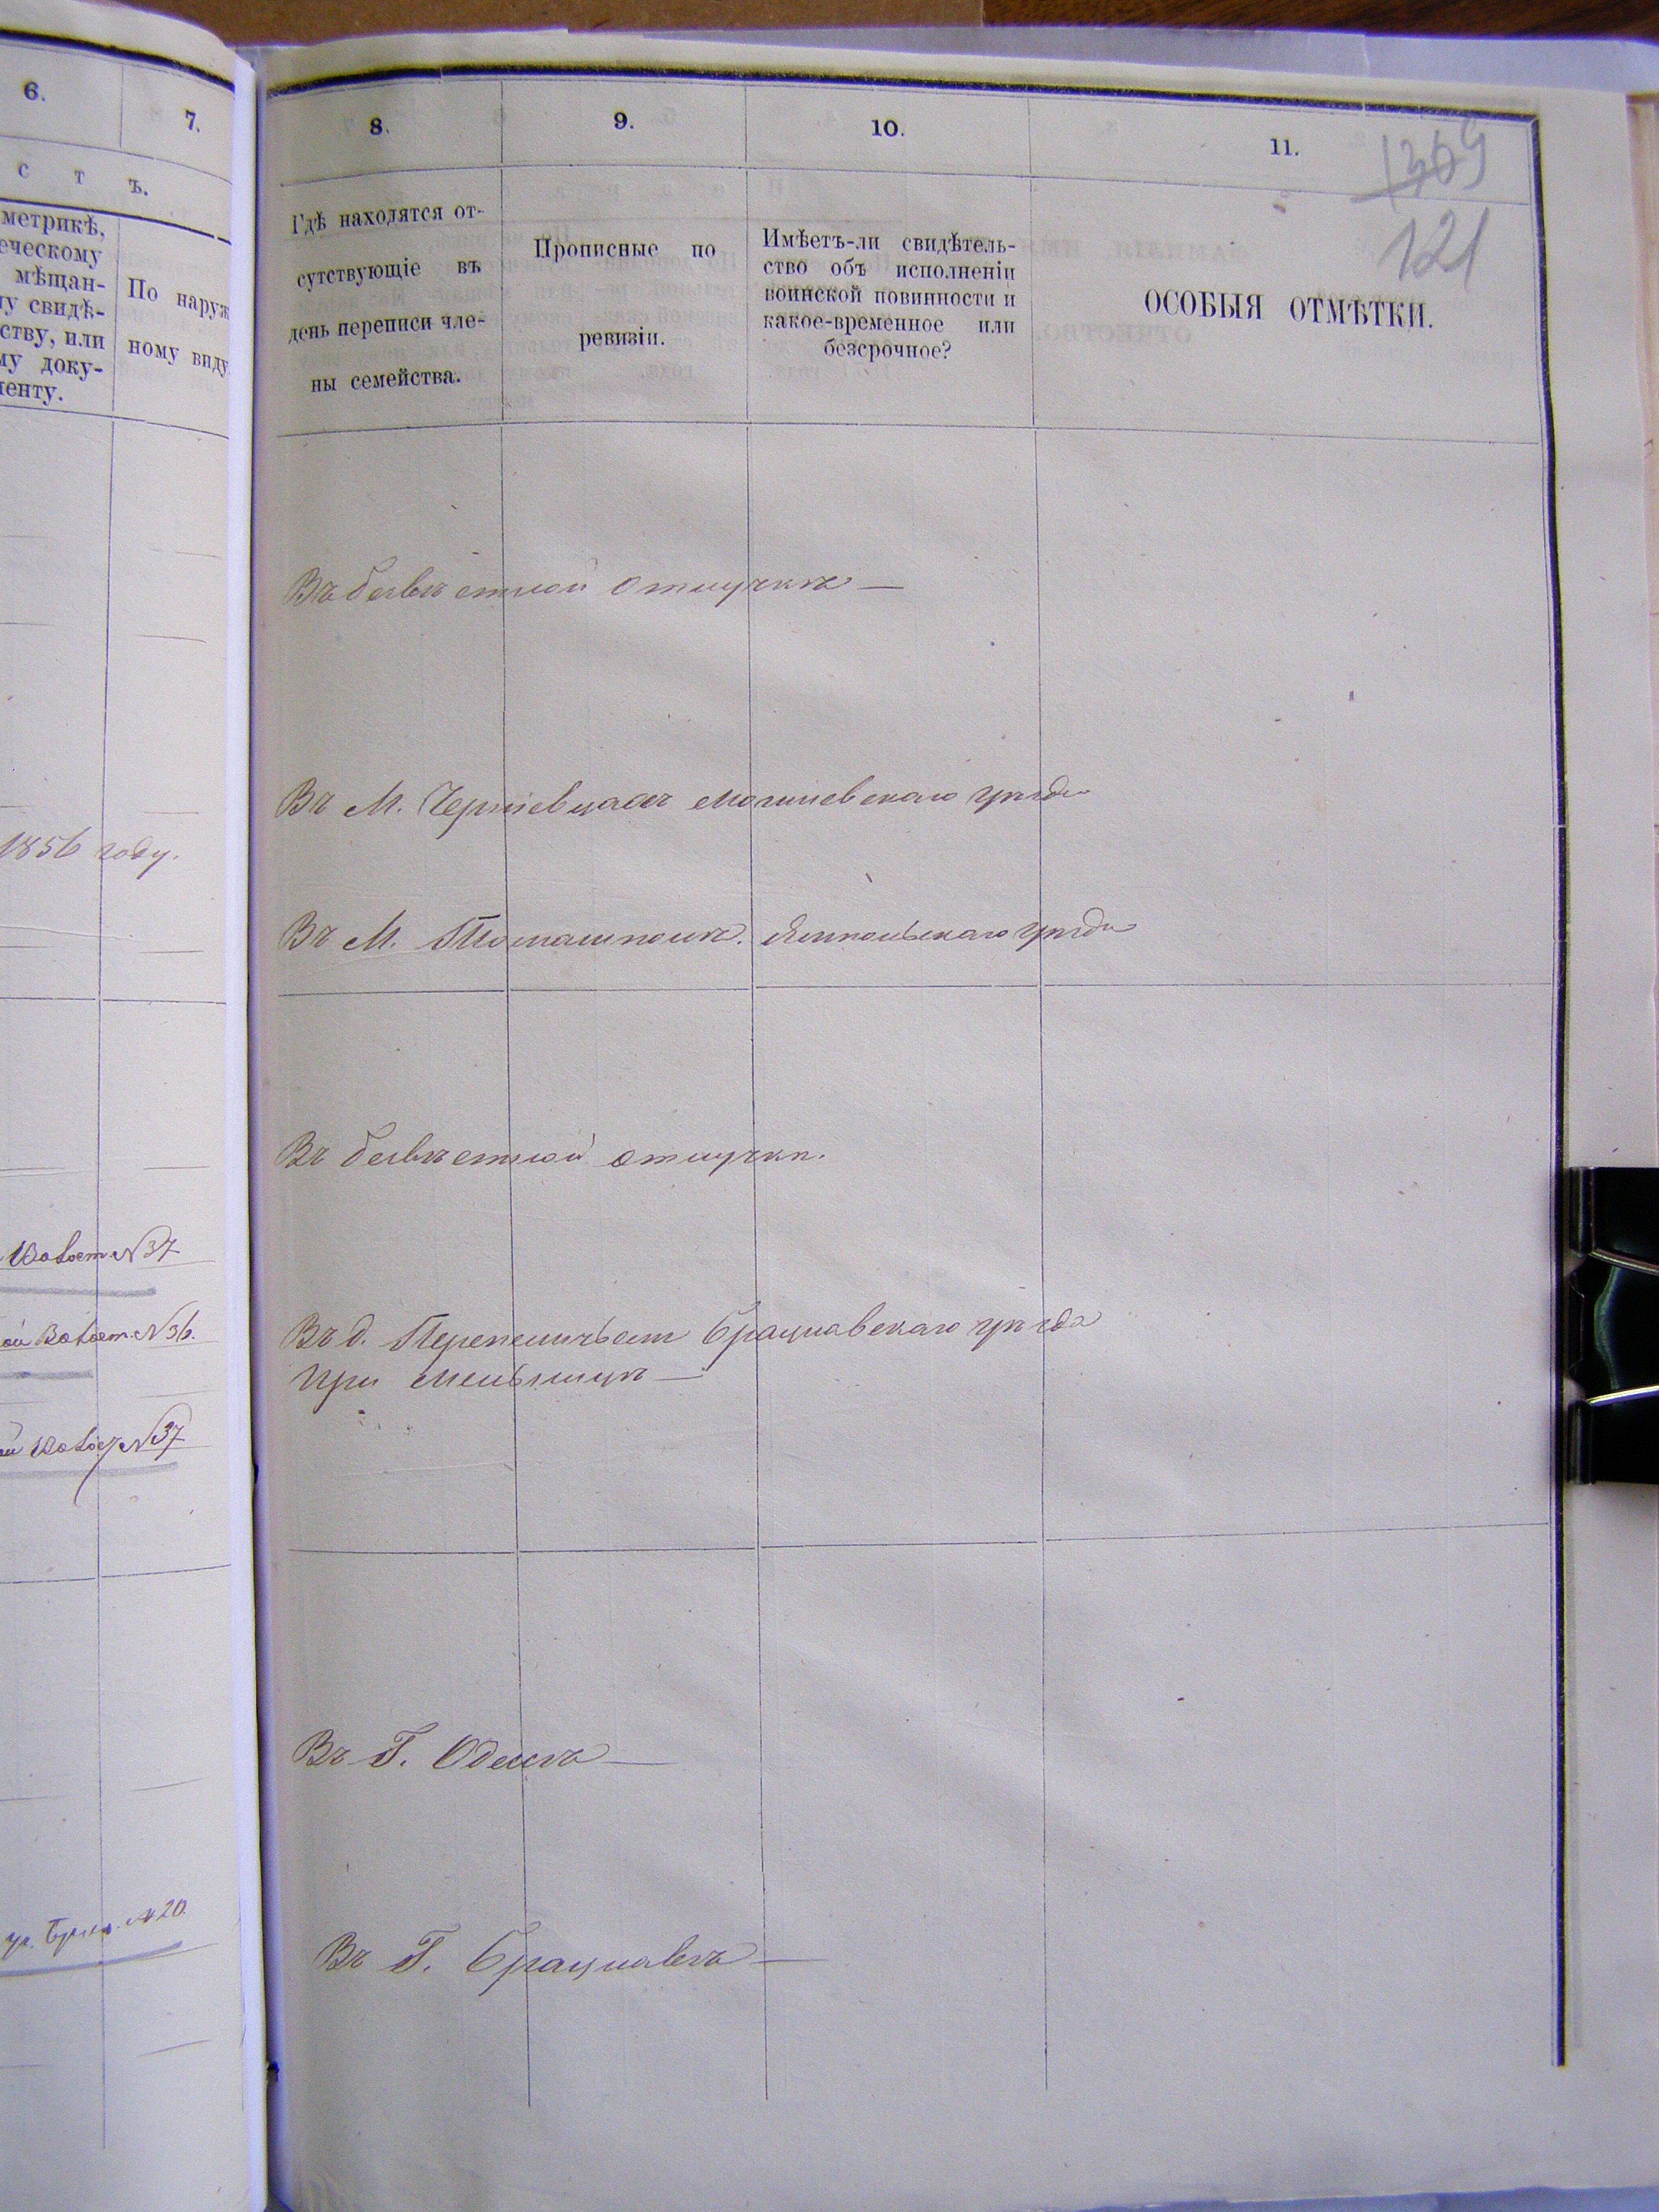 6.
7.
с т ъ.
метрикѣ,
еческому
мѣщан-
му свидѣ-
ству, или
му доку-
менту.
По наруж
ному виду
1856 году.
№ 37
№ 36.
№ 37
№ 20.
8.
9.
10.
11.
1369
121
Гдѣ находятся от-
сутствующіе въ
день переписи чле-
ны семейства.
Прописные по
ревизіи.
Имѣетъ-ли свидѣтель-
ство объ исполненіи
воинской повинности и
какое-временное или
безсрочное?
ОСОБЫЯ ОТМѢТКИ.
Въ безвѣстной отлучкѣ —
Въ М. Черніевцахъ Могилевскаго уѣзда
Въ М. Томашполѣ. Ямпольскаго уѣзда
Въ безвѣстной отлучкѣ.
Въ д. Перепеличьей Брацлавскаго уѣзда
при мельницѣ —
Въ Г. Одессѣ —
Въ Г. Брацлавѣ —